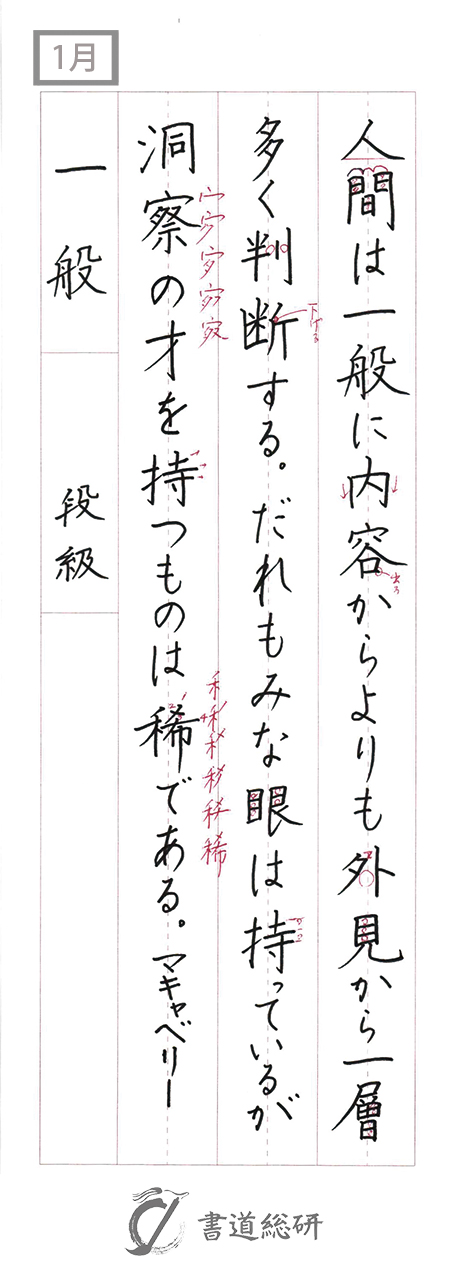 1月
人間は一般に内容からよりも外見から一層
多く判断する。だれもみな眼は持っているが
洞察の才を持つものは稀である。マキャベリー
一般
段級
下げる
出す
書道総研